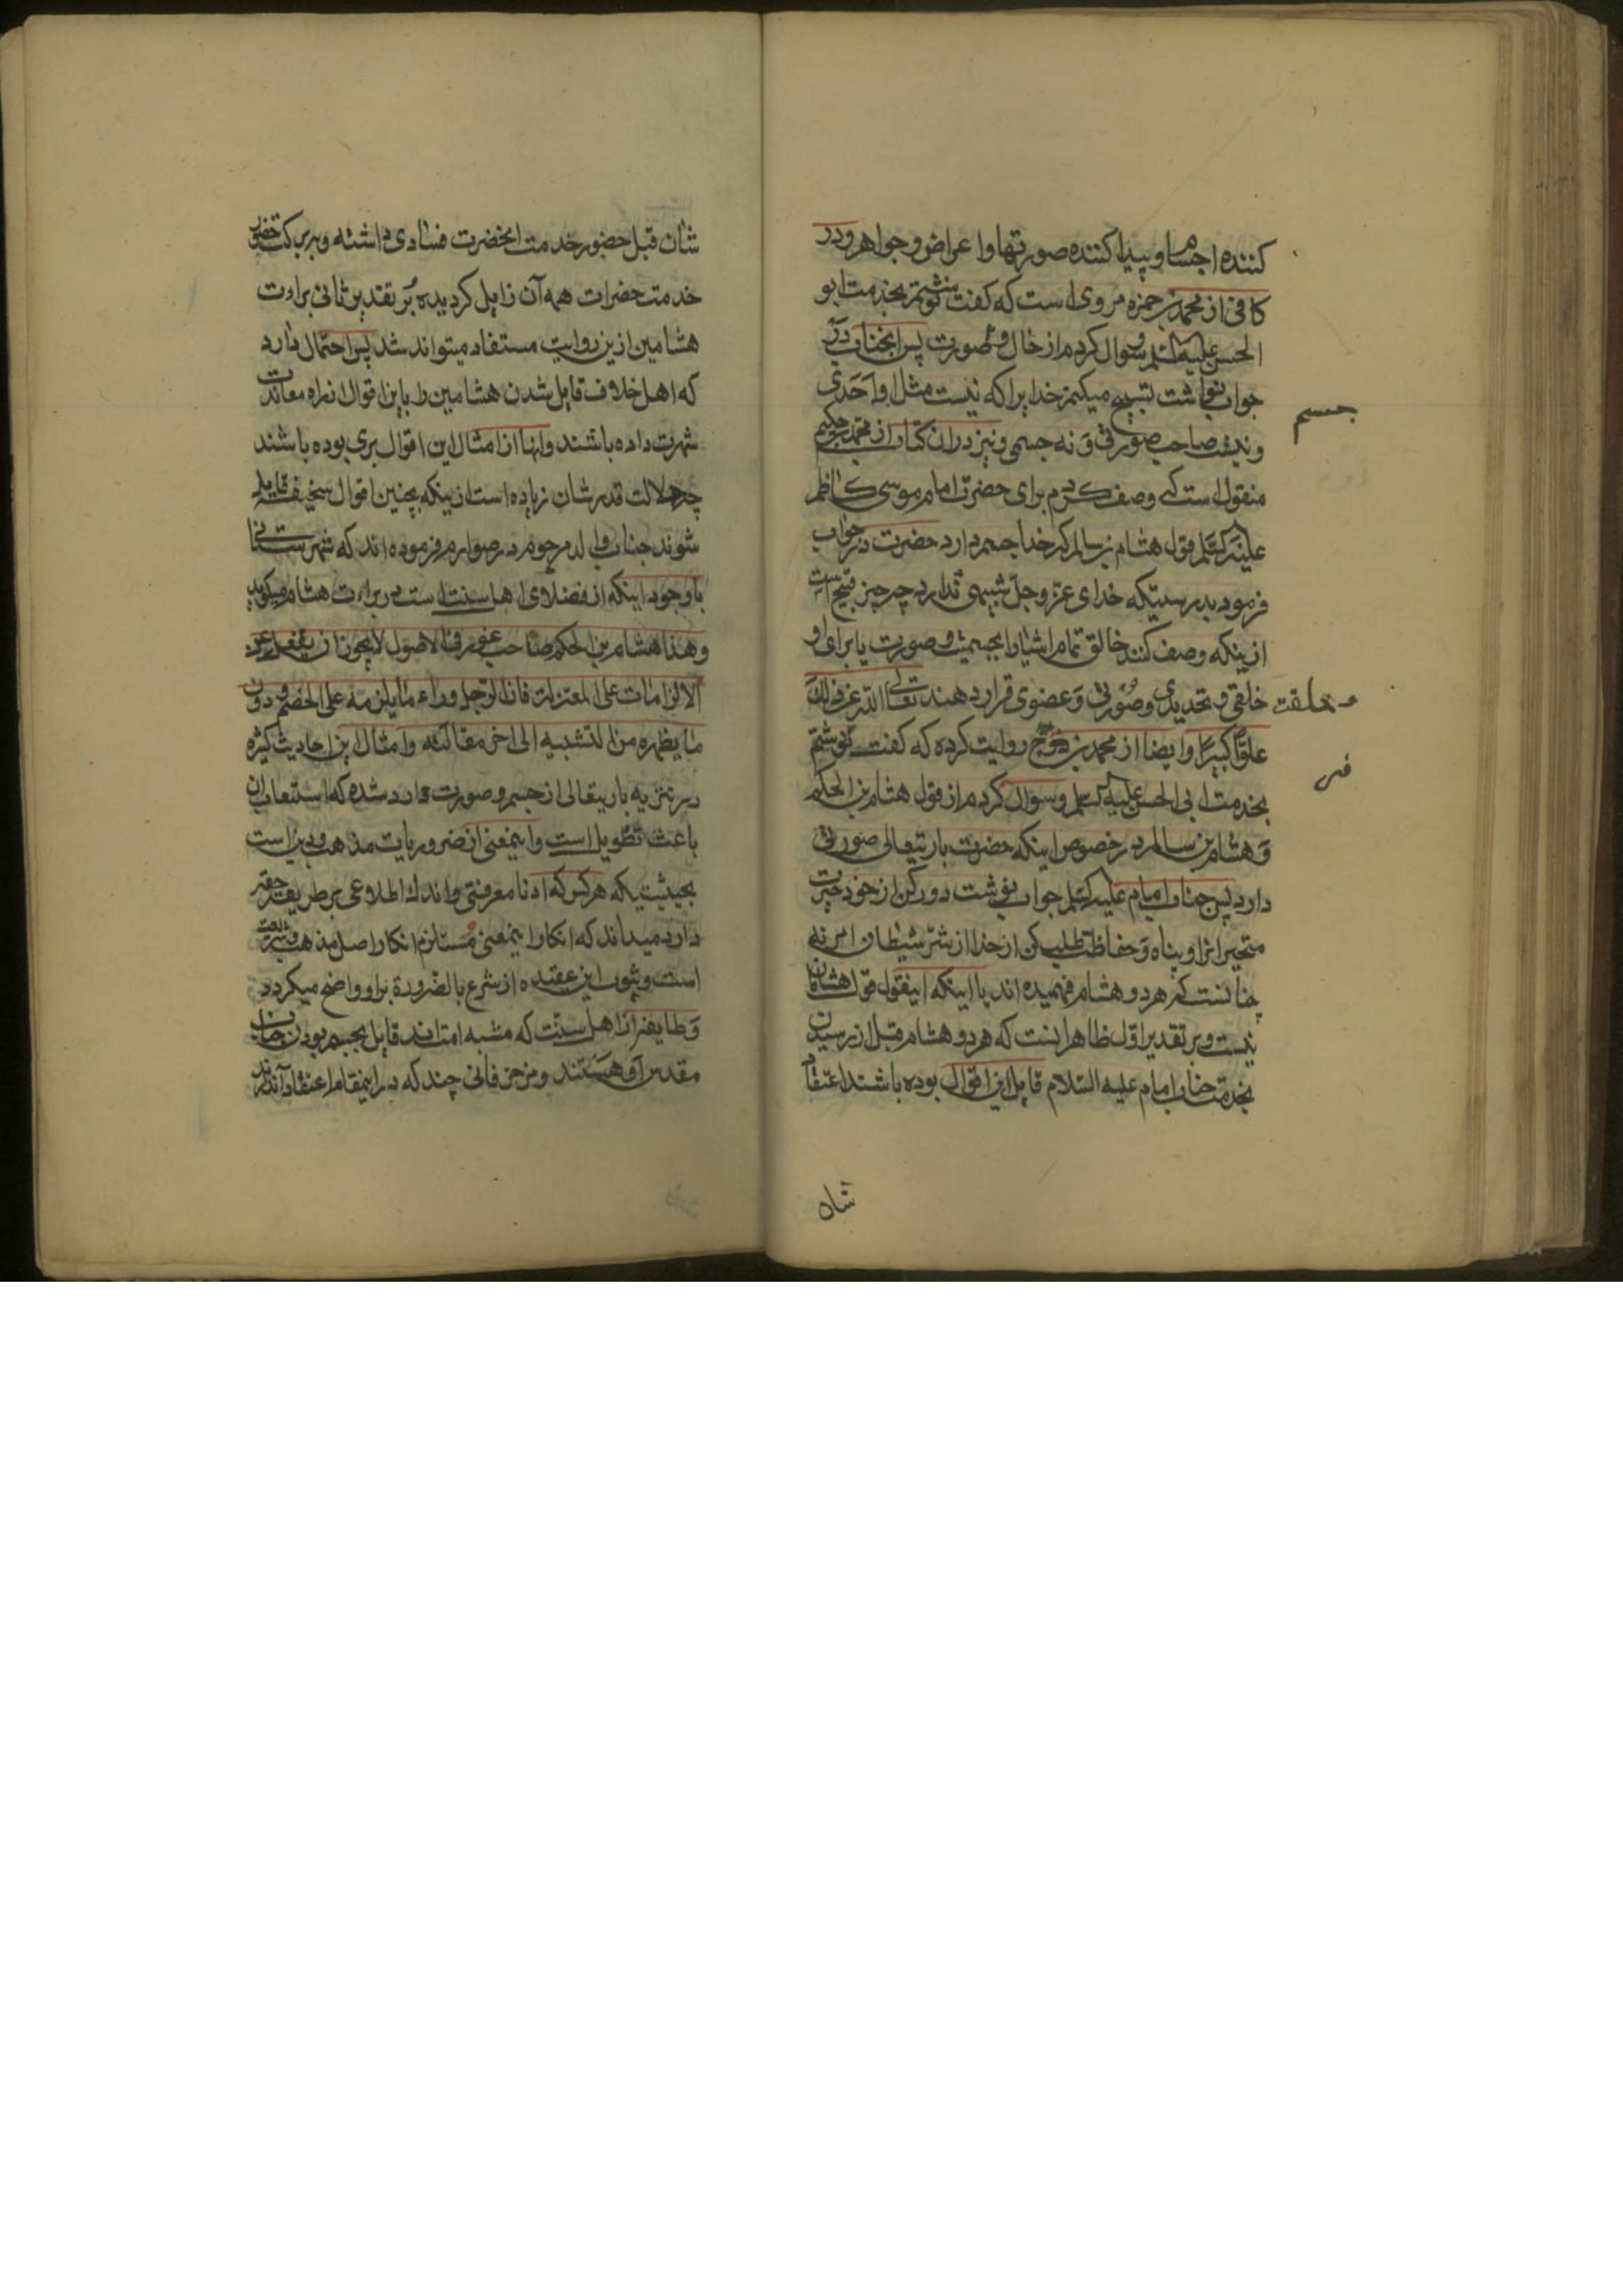 کننده اجسام و پیدا کننده صورتها و اعراض و جواهر و در
کافی از محمد بن حمزه مروی است که کفت نوشتم بخدمت ابو
الحسن علیه السلم و سوال کردم از حال و صورت پس انجناب در
جواب نوشت تسبیح میکنم خدایرا که نیست مثل او احدی
و نیست صاحب صورتی و نه جسمی و نیز در ان کتاب از محمد بن حکیم
منقول است که وصف کردم برای حضرت امام موسی کاظم
علیه السلم قول هشام بن سالم که خدا جسم دارد حضرت در جواب
فرمود بدرستیکه خدای عز و جل شبیهی ندارد چه چیز قبیح است
ازینکه وصف کنند خالق تمام اشیا را بجسمیت و صورت یا برای او
خلقی و تحدیدی و صورتی و عضوی قرار دهند تعالی الله عن ذلک
علوا کبیرا و ایضا از محمد بن فرج روایت کرده که کفت نوشتم
بخدمت ابی الحسن علیه السلم و سوال کردم از قول هشام بن الحکم
و هشام بن سالم در خصوص اینکه حضرت باریتعالی صورتی
دارد پس جناب امام علیه السلم جواب نوشت دور کن از خود حیرت
متحیر انرا و پناه و حفاظت طلب کن از خدا از شر شیطان امر نه
چنانست که هر دو هشام فهمیده اند یا اینکه اینقول قول هشامان
نیست و بر تقدیر اول ظاهر انست که هر دو هشام قبل از رسیدن
بخدمت جناب امام علیه السلام قایل این اقوال بوده باشند اعتقاد
جسم
خلقت
فر
شان
شان قبل حضور خدمت انحضرت فسادی داشته و ببرکت حضور
خدمت حضرات همه آن زایل کردیده بر تقدیر ثانی براءت
هشامین ازین روایت مستفاد میتواند شد پس احتمال دارد
که اهل خلاف قایل شدن هشامین را باین اقوال از راه معاندت
شهرت داده باشند و انها از امثال این اقوال بری بوده باشند
چه جلالت قدر شان زیاده است ازینکه بچنین اقوال سخیفه قایل
شوند جناب والد مرحوم در صوارم فرموده اند که شهرستانی
با وجود اینکه از فضلای اهل سنت است در براءت هشام میکوید
و هذا هشام بن الحکم صاحب غور فی الاصول لا یجوز ان یغفل عن
الالزامات علی المعتزلة فان الرجل وراء ما یلزمه علی الخصم و دون
ما یظهره من التشبیه الی اخر مقالته و امثال این احادیث کثیره
در تنزیه باریتعالی از جسم و صورت وارد شده که استیعاب ان
باعث تطویل است و اینمعنی از ضروریات مذهب و دین است
بحیثیتیکه هر کس که ادنا معرفتی و اندک اطلاعی بر طریقه حقه
دارد میداند که انکار اینمعنی مستلزم انکار اصل مذهب و شریعت
است و ثبوت این عقیده از شرع بالضرورة براو واضح میکردد
و طایفه از اهل سنت که مشبه امت اند قایل بجسم بودن جناب
مقدس او هستند و مزخرفاتی چند که در اینمقام اعتقاد آن دارند